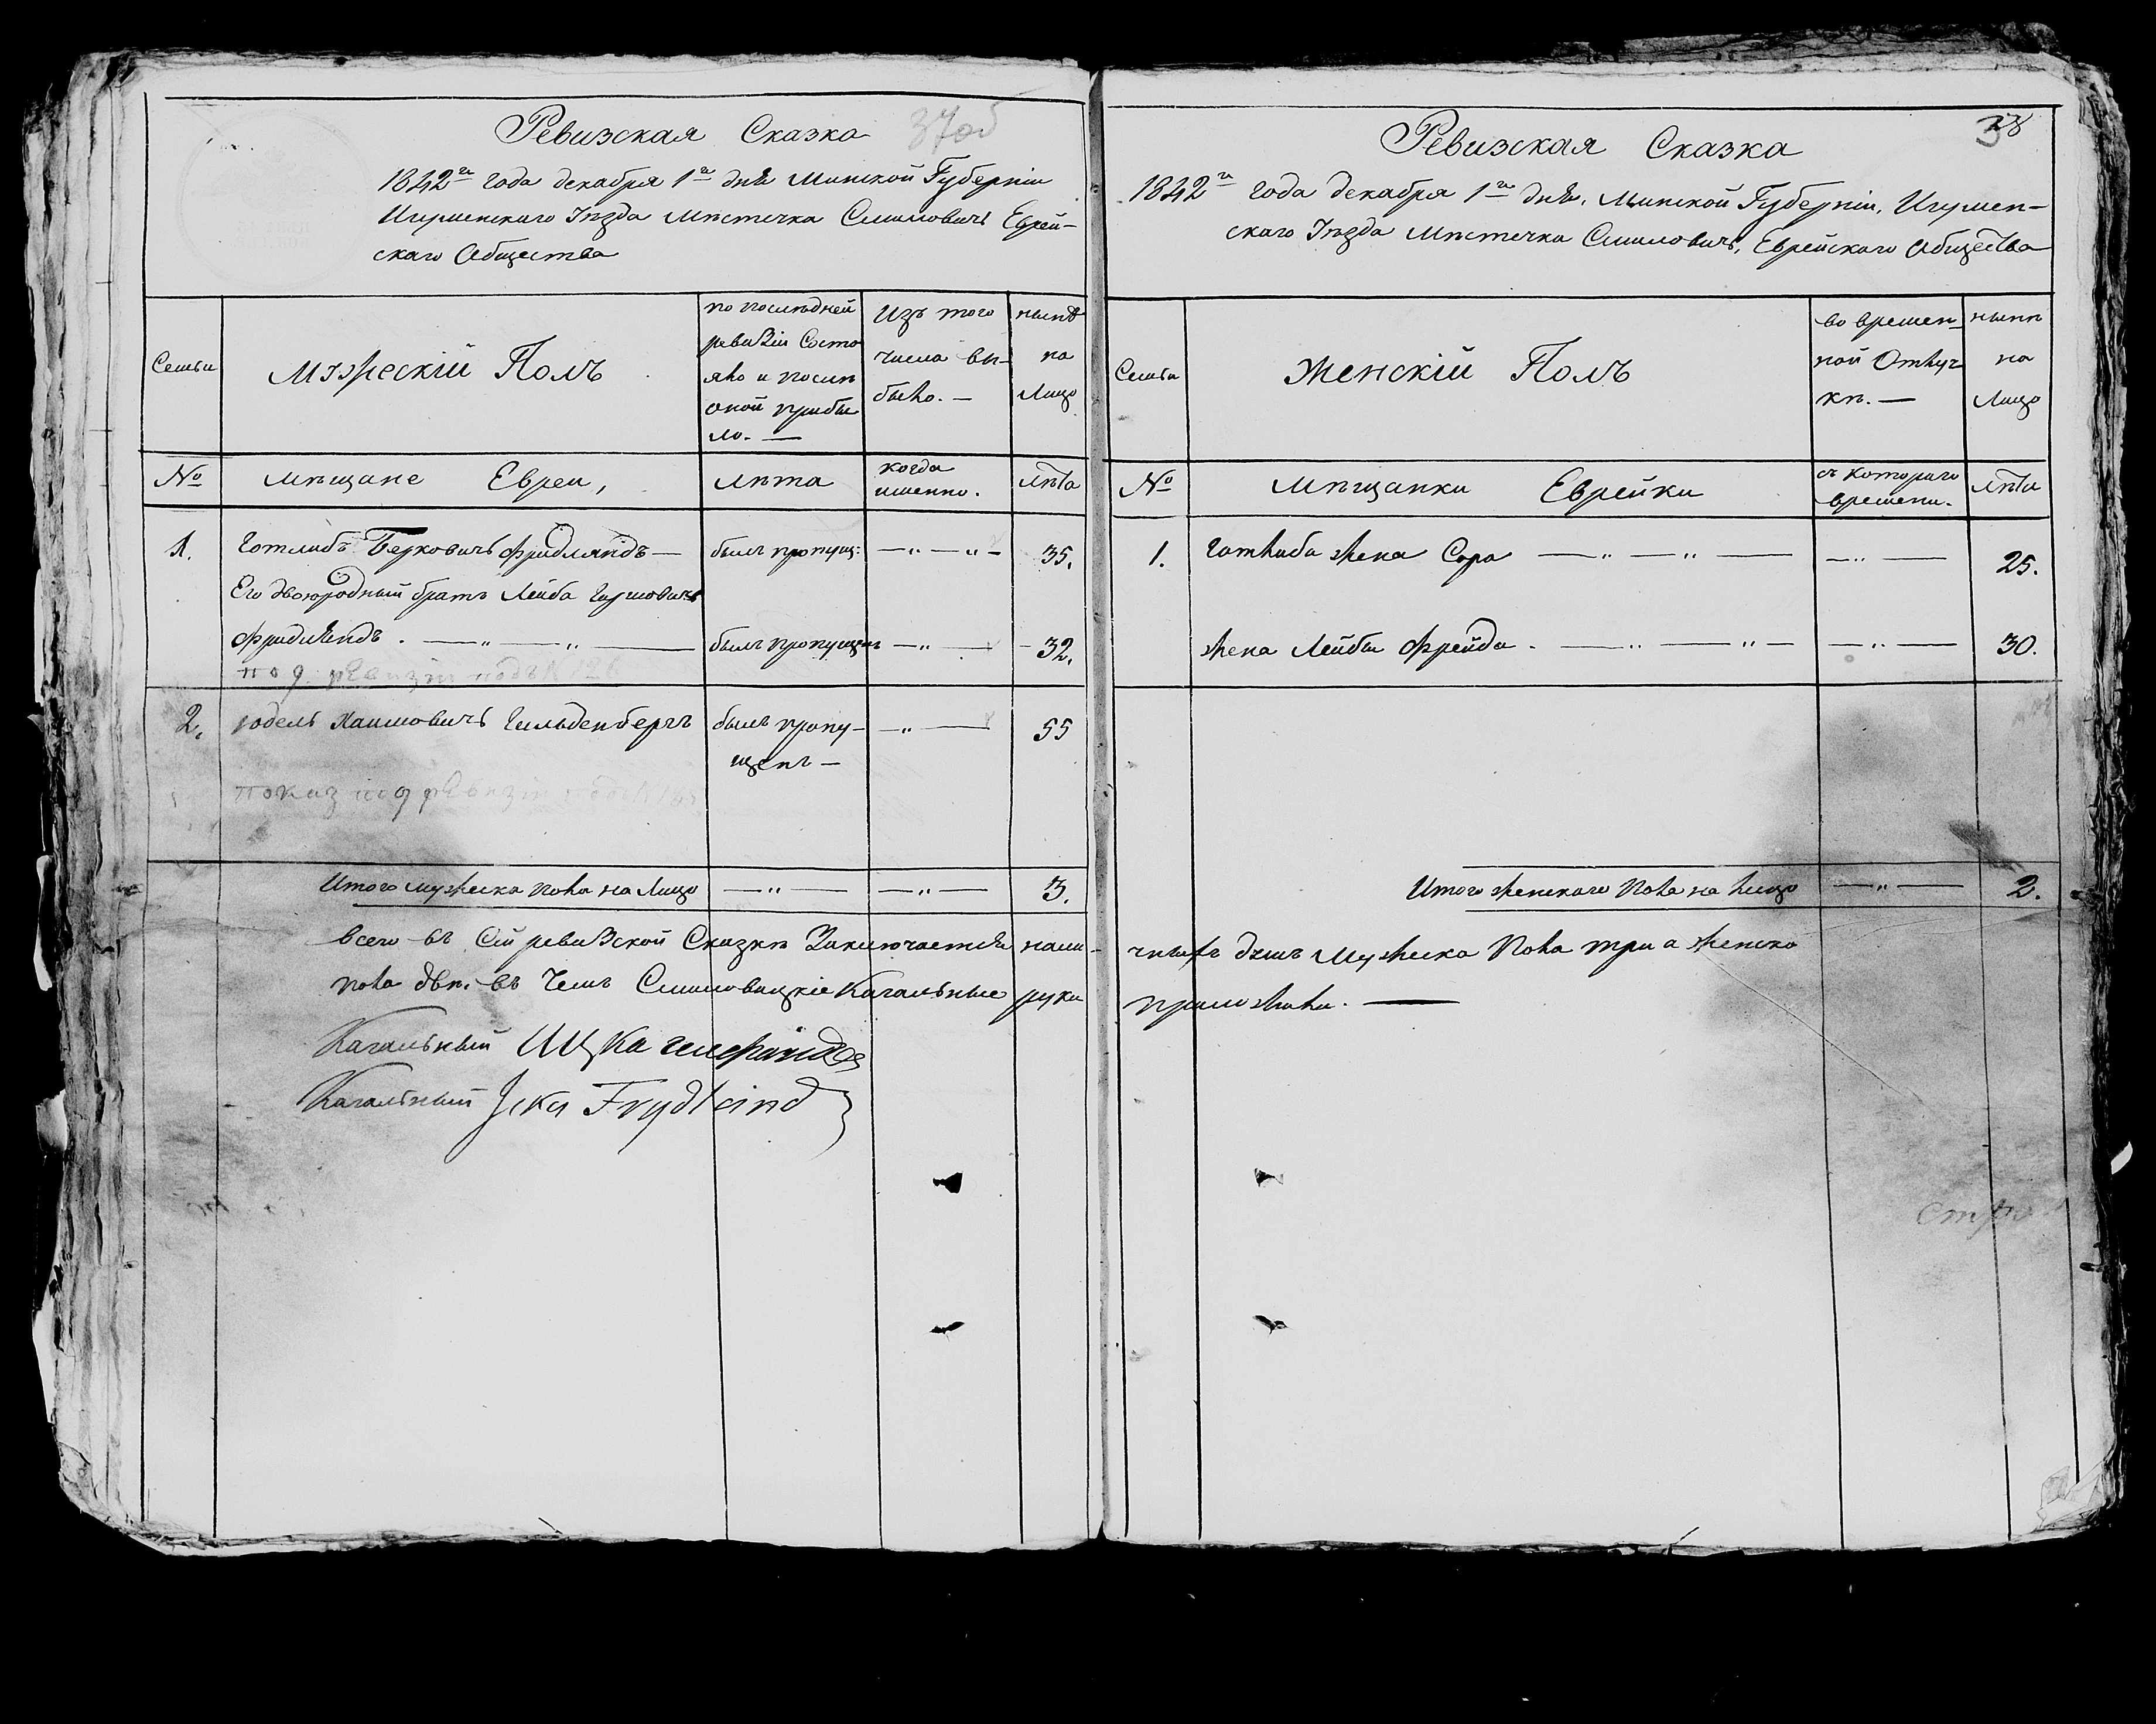 Ревизская Сказка
37об
1842го года декабря 1го дня Минской Губерніи
Игуменскаго Уѣзда Мѣстечка Смиловичъ Еврей-
скаго Общества
Семьи
Мужескій Полъ
по послѣдней
ревизіи Состо
яло и послѣ
оной прибы
ло. —
Изъ того
числа вы-
было. —
нынѣ
на
Лицо
№
Мѣщане Евреи,
лѣта
когда
именно.
лѣта
1. Готлибъ Берковичъ Фридляндъ — былъ пропущ: — „ — „ — 35.
Его двоюродный братъ Лейба Гиршовичъ
Фридляндъ. — „ — „ — былъ пропущенъ — „ — 32.
ревизіи подъ №
2. Юдель Хаимовичъ Гильденбергъ былъ пропу- — „ — 55
щенъ —
показ по 9 ревизіи подъ №
Итого мужеска пола на Лицо — „ — — „ — 3.
Всего въ Сей ревизской Сказкѣ Заключается нали-
пола двѣ. въ Чемъ Смиловицкіе Кагальные руки
Кагальный Ицка
Кагальный Frydland
Ревизская Сказка
38
1842го года декабря 1го дня, Минской Губерніи, Игумен-
скаго Уѣзда Мѣстечка Смиловичъ, Еврейскаго Общества
Семьи
Женскій Полъ
во времен-
ной Отлуч
кѣ. —
нынѣ
на
Лицо
№
Мѣщанки Еврейки
съ котораго
времени.
лѣта
1. Готлиба жена Сора — „ — „ — — „ — 25.
жена Лейбы Фрейда. — „ — „ — — „ — 30.
Итого женскаго пола на лицо — „ — 2.
чныхъ душъ Мужеска Пола три а женска
приложили. —